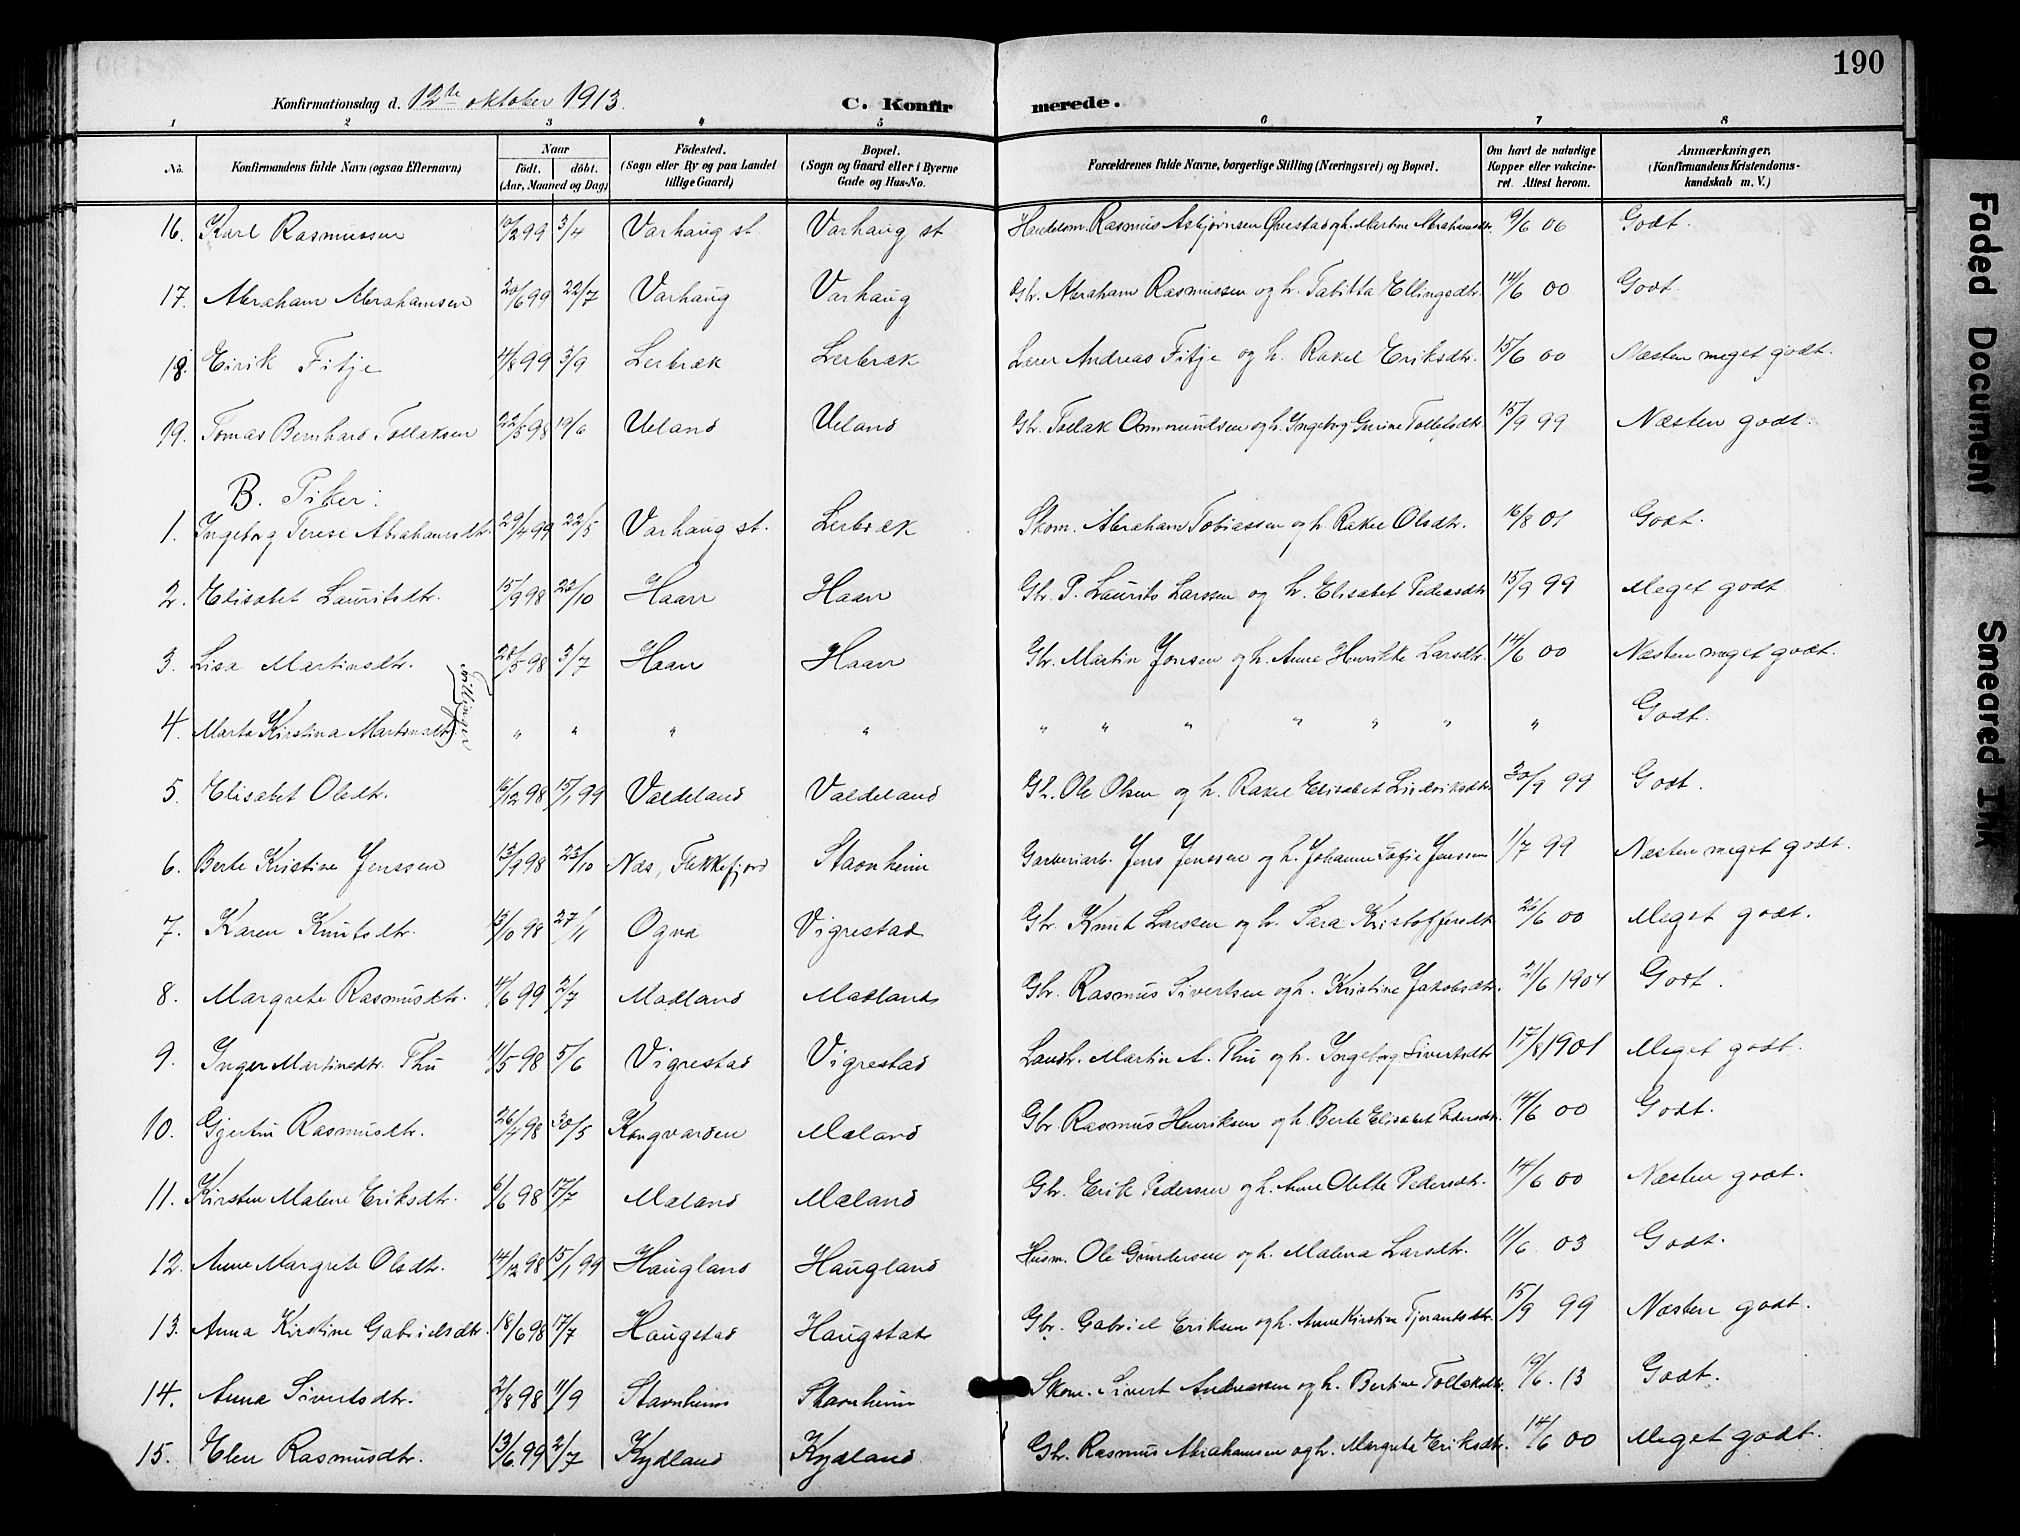 190
Konfirmationsdag d. 12te oktober 1913. C. Konfirmerede.
1 2 3 4 5 6 7 8
No. Konfirmandens fulde Navn (ogsaa Efternavn) Naar født. døbt. (Aar, Maaned og Dag) Fødested. (Sogn eller By og paa Landet tillige Gaard) Bopæl. (Sogn og Gaard eller i Byerne Gade og Hus-No. Forældrenes fulde Navne, borgerlige Stilling (Næringsvei) og Bopæl. Om havt de naturlige Kopper eller vakcineret. Attest herom. Anmærkninger. (Konfirmandens Kristendomskundskab m. V.)
16. Karl Rasmussen 10/2 99 3/4 Varhaug st. Varhaug st Handelsm. Rasmus Asbjørnsen og h. Martine Abrahamsdtr. 9/6 06 Godt.
17. Abraham Abrahamsen 20/6 99 22/7 Varhaug Varhaug Gbr. Abraham Rasmussen og h. Tabitta Ellingsdtr. 14/6 00 Godt.
18. Eirik Fitje 4/8 99 3/9 Lerbræk Lerbræk Lærer Andreas Fitje og h. Rakel Eriksdtr. 15/6 00 Næsten meget godt.
19. Tomas Bernhard Tollaksen 22/5 98 19/6 Ueland Ueland Gbr. Tollak Ommundsen og h. Ingeborg Gurine Tollefsdtr. 15/9 99 Næsten godt.
B. Piker:
1. Ingeborg Terese Abrahamsdtr. 29/4 99 22/5 Varhaug st. Lerbræk Skom. Abraham Tobiassen og h. Rakel Olsdtr. 16/8 01 Godt.
2. Elisabet Lauritsdtr. 15/9 98 22/10 Haar Haar Gbr. P. Laurits Larssen og h. Elisabet Pedersdtr 15/9 99 Meget godt
3. Lisa Martinsdtr. 28/5 98 3/7 Haar Haar Gbr. Martin Jonsen og h. Anne Henrikke Larsdtr. 14/6 00 Næsten meget godt.
tvillinger
4. Marta Kirstina Martinsdtr. " " " " " " " " " " " Godt.
5. Elisabet Olsdtr. 16/12 98 15/1 99 Valdeland Valdeland Gb. Ole Olsen og h. Rakel Elisabet Ludviksdtr 30/9 99 Godt.
6. Berte Kristine Jenssen 13/9 98 23/10 Næs, Flekkefjord Stavnheim Garveriarb. Jens Jenssen og h. Johanne Sofie Jenssen 1/7 99 Næsten meget godt.
7. Karen Knutsdtr. 3/10 98 27/11 Ogna Vigrestad Gbr. Knut Larssen og h. Sara Kristoffersdtr 26/6 00 Meget godt.
8. Margrete Rasmusdtr. 4/6 99 2/7 Madland Madland Gbr. Rasmus Sivertsen og h. Kristine Jakobsdtr. 21/6 1904 Godt.
9. Inger Martinsdtr. Thu 11/5 98 5/6 Vigrestad Vigrestad Landh. Martin A. Thu og h. Ingeborg Sivertsdtr 17/8 1901 Meget godt.
10. Gjertru Rasmusdtr. 26/4 98 30/5 Kongvarden Mæland Gbr Rasmus Henriksen og h. Berte Elisabet Pedersdtr. 14/6 00 Godt.
11. Kirsten Malene Eriksdtr. 6/6 98 17/7 Mæland Mæland Gbr. Erik Pedersen og h. Anne Olette Pedersdtr. 14/6 00 Næsten godt.
12. Anne Margrete Olsdtr. 14/12 98 15/1 99 Haugland Haugland Husm. Ole Gundersen og h. Malena Larsdtr. 11/6 03 Godt.
13. Anna Kirstine Gabrielsdtr. 18/6 98 17/7 Haugstad Haugstad Gbr. Gabriel Eriksen og h. Anne Kirstine Tjerandsdtr. 15/9 99 Næsten godt.
14. Anna Sivertsdtr. 2/8 98 11/9 Stavnheim Stavnheim Skom. Sivert Andreassen og h. Bertine Tollaksdtr. 19/6 13 Godt.
15. Elen Rasmusdtr. 13/6 99 2/7 Kydland Kydland Gbr. Rasmus Abrahamsen og h. Margrete Eriksdtr. 14/6 00 Meget godt.
Faded Document
Smeared Ink